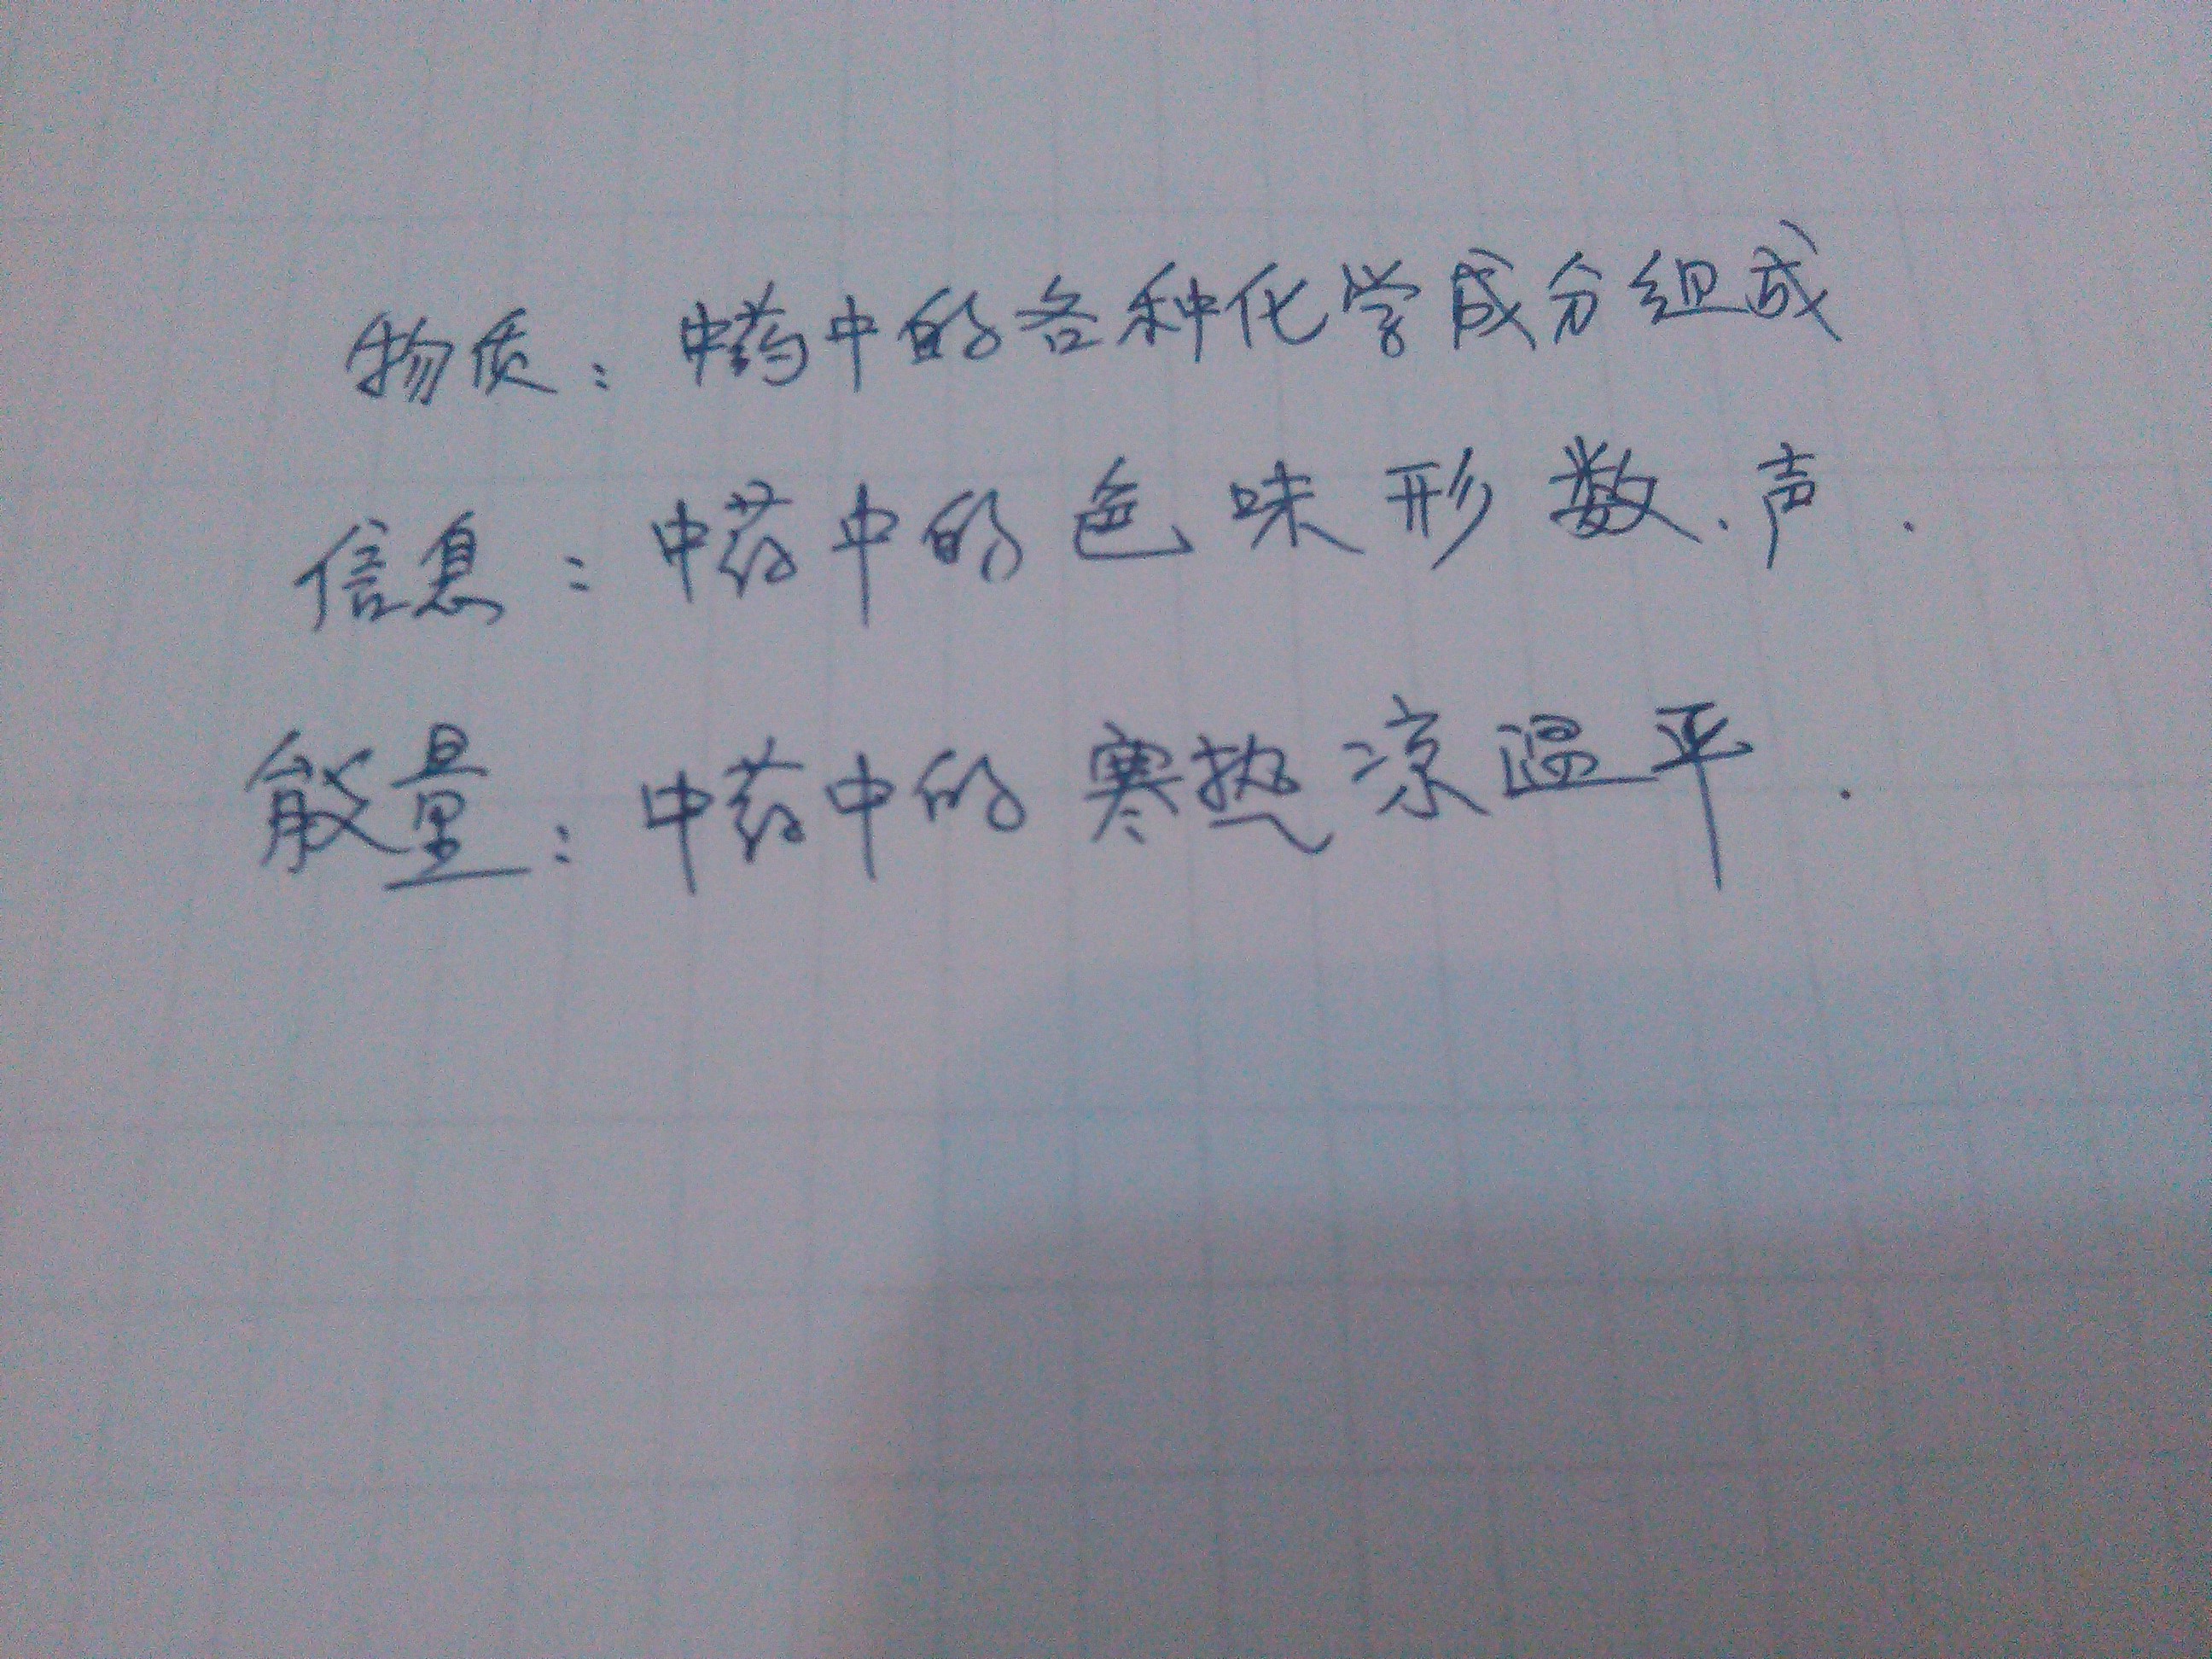 物质：中药中的各种化学成分组成
信息：中药中的色味形数.声.
能量：中药中的寒热凉温平.